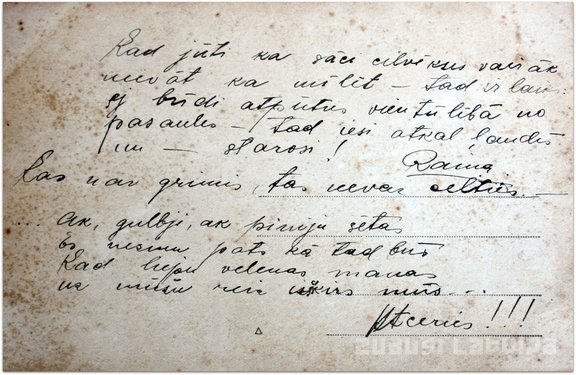 Kad jūti ka sāci cilvēkus vairāk
nevāt ka mīlēt – tad ir laiks
ej brīdi atpūties vientulībā no
pasaules – tad iesi atkal ļaudīs
un – starosi!
Rainis
Kas nav grimis, tas nevar celties. –
.... Ak, gulbji, ak pinuju sētas
Es nezinu pats kā tad būs
Kad liepu velenas manas
uz mūžu reiz šķirs mūs ...
Atceries!!!